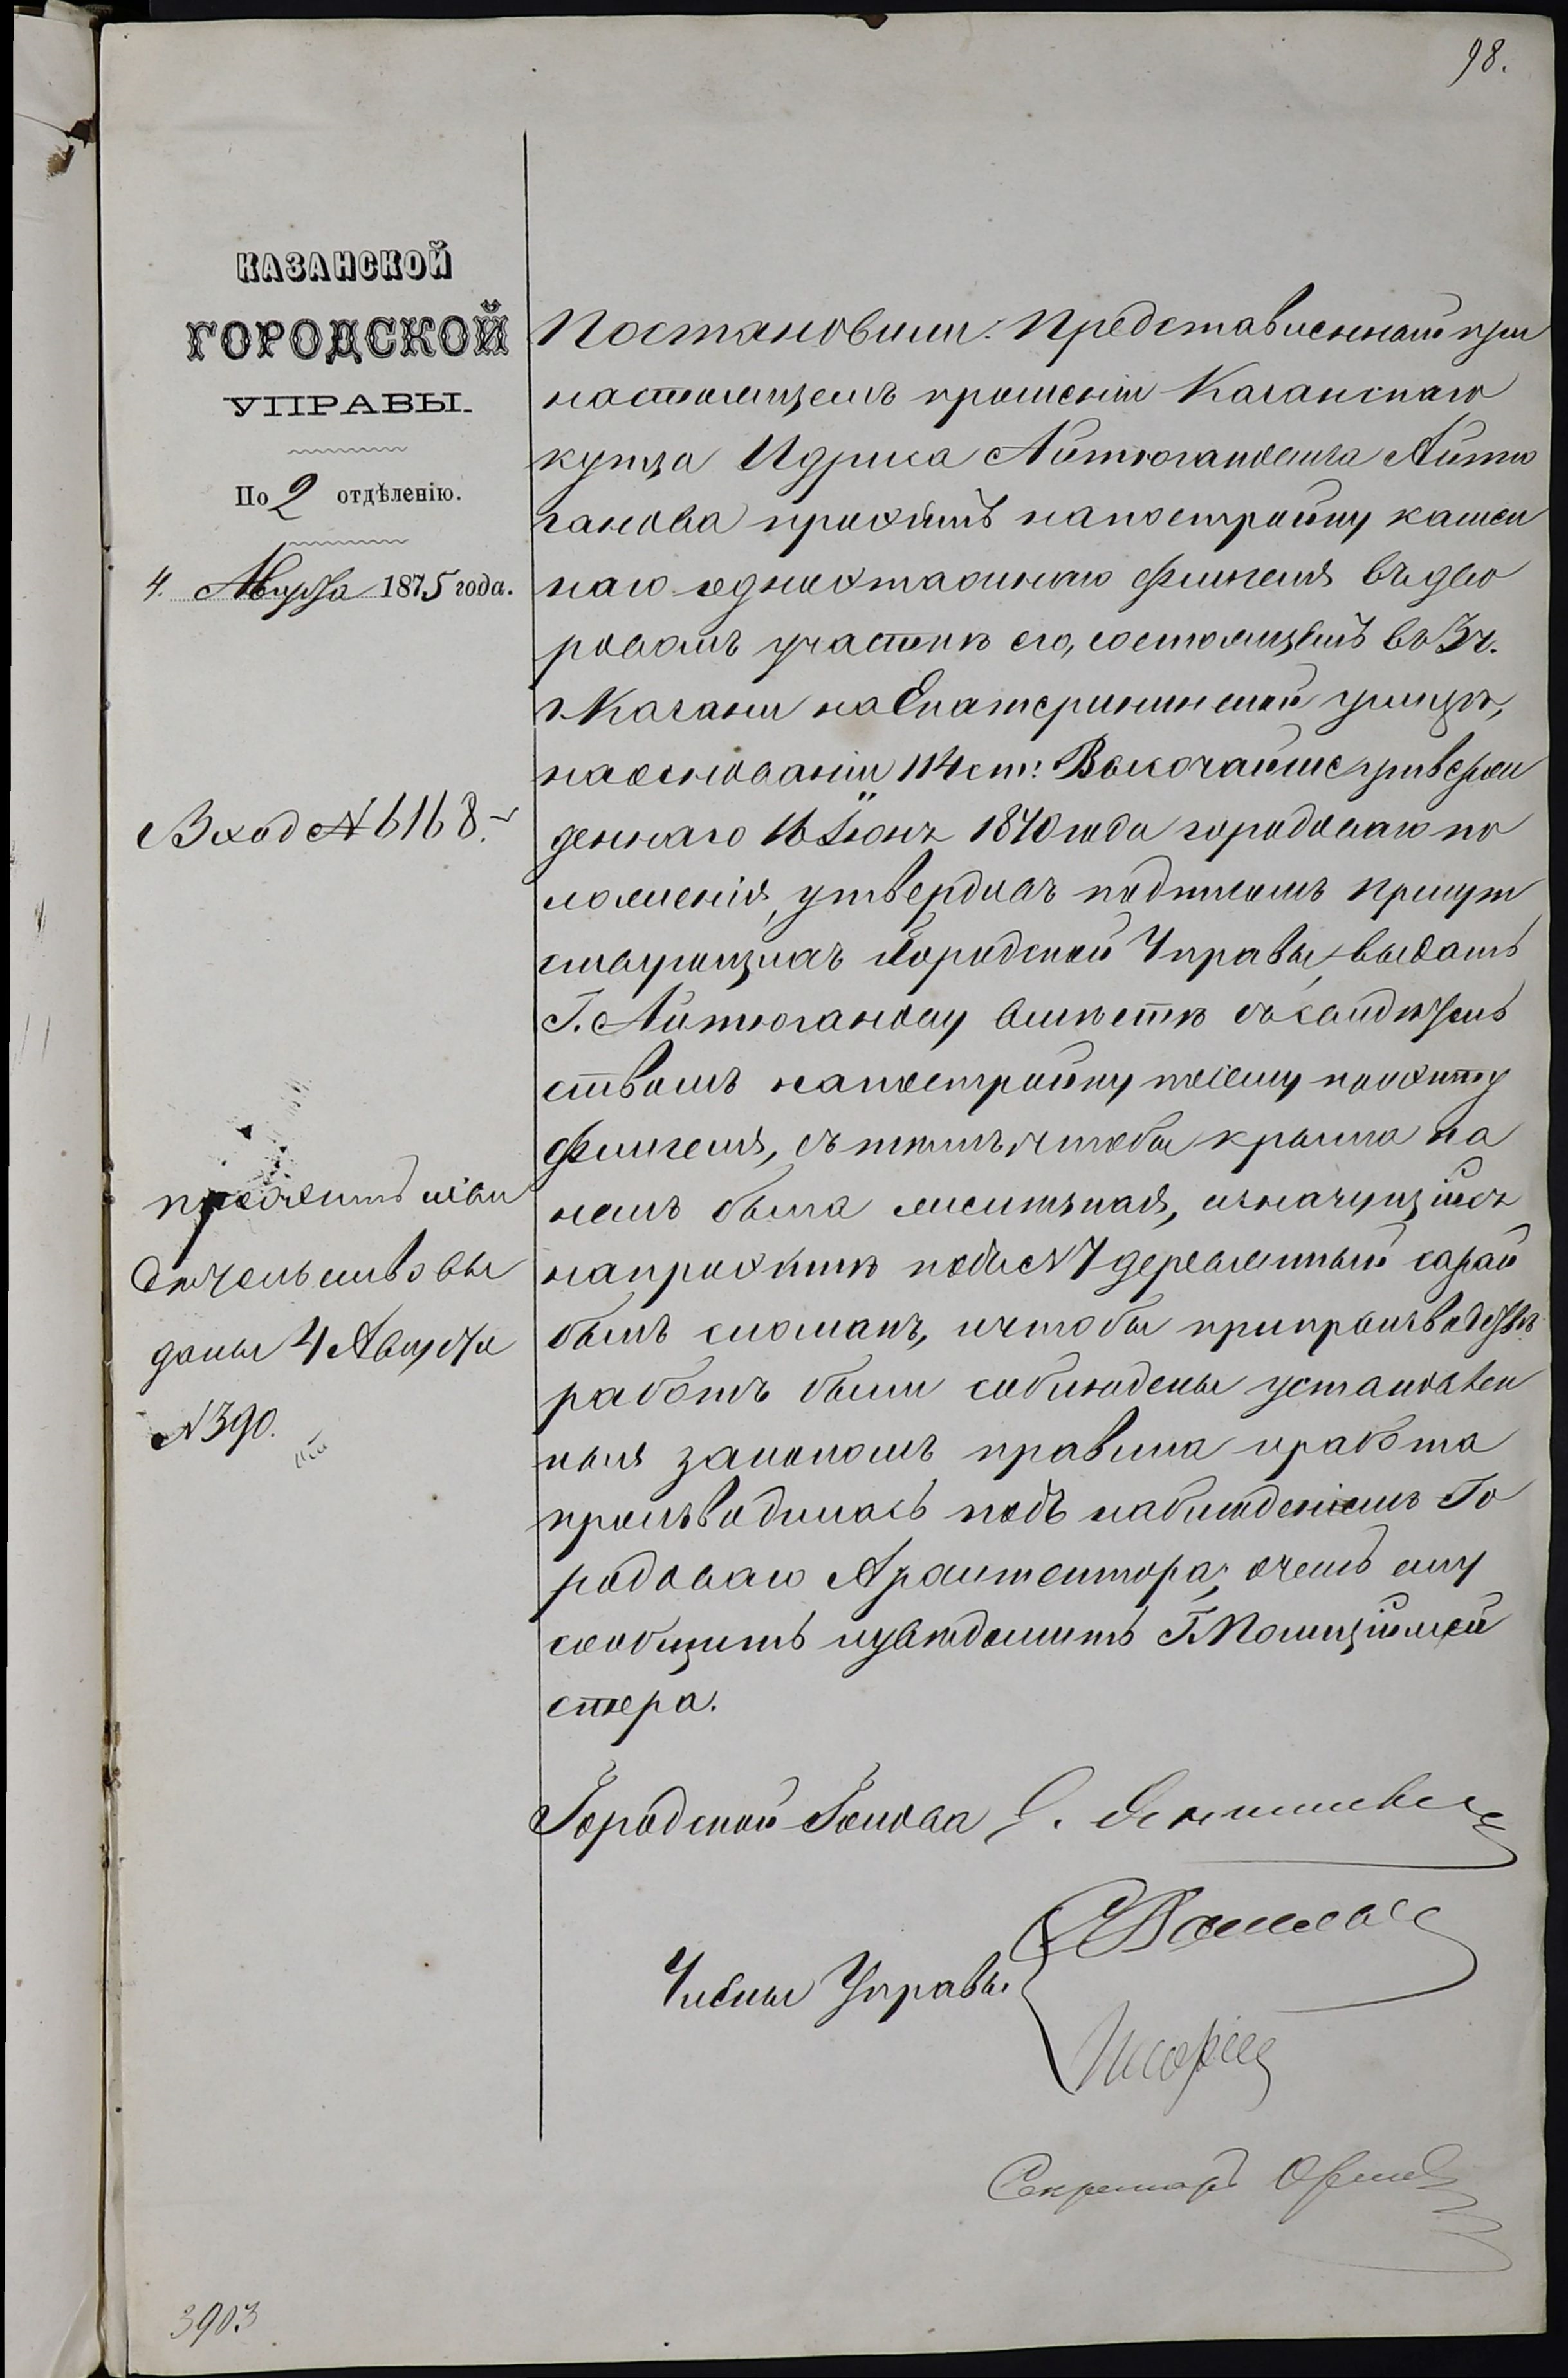 98.
КАЗАНСКОЙ
ГОРОДСКОЙ
УПРАВЫ.
По 2 отдѣленію.
4. Августа 1875 года.
Вход № 6168.
проэктъ и сви
дѣтельство вы
даны 4 Августа
№ 390.
Постановили: Представленный при
настоящемъ прошеніи Казанскаго
купца Идриса Айтюгановича Айтю
ганова проэктъ на постройку камен
наго одноэтажнаго флигеля въ дво
ровомъ участкѣ его, состоящемъ въ 3 ч.
г. Казани на Екатерининской улицѣ,
на основаніи 114 ст: Высочайше утвержд
деннаго 16 Іюня 1870 года городоваго по
ложенія, утвердивъ подписомъ присут
ствующихъ Городской Управы, выдать
Г. Айтюганову вмѣстѣ съ свидѣтель
ствомъ на постройку по сему проэкту
флигеля, съ тѣмъ, чтобы крыша на
немъ была желѣзная, и значущійся
на проэктѣ подъ № 7 деревянный сарай
былъ сломанъ, и чтобы при производствѣ
работъ были соблюдены установлен
ныя закономъ правила и работа
производилась подъ наблюденіемъ Го
родоваго Архитектора; о чемъ ему
сообщить и увѣдомить Г. Полиціймей
стера.
Городской Голова Э. Янишевскій
Члены Управы
Секретарь
3903